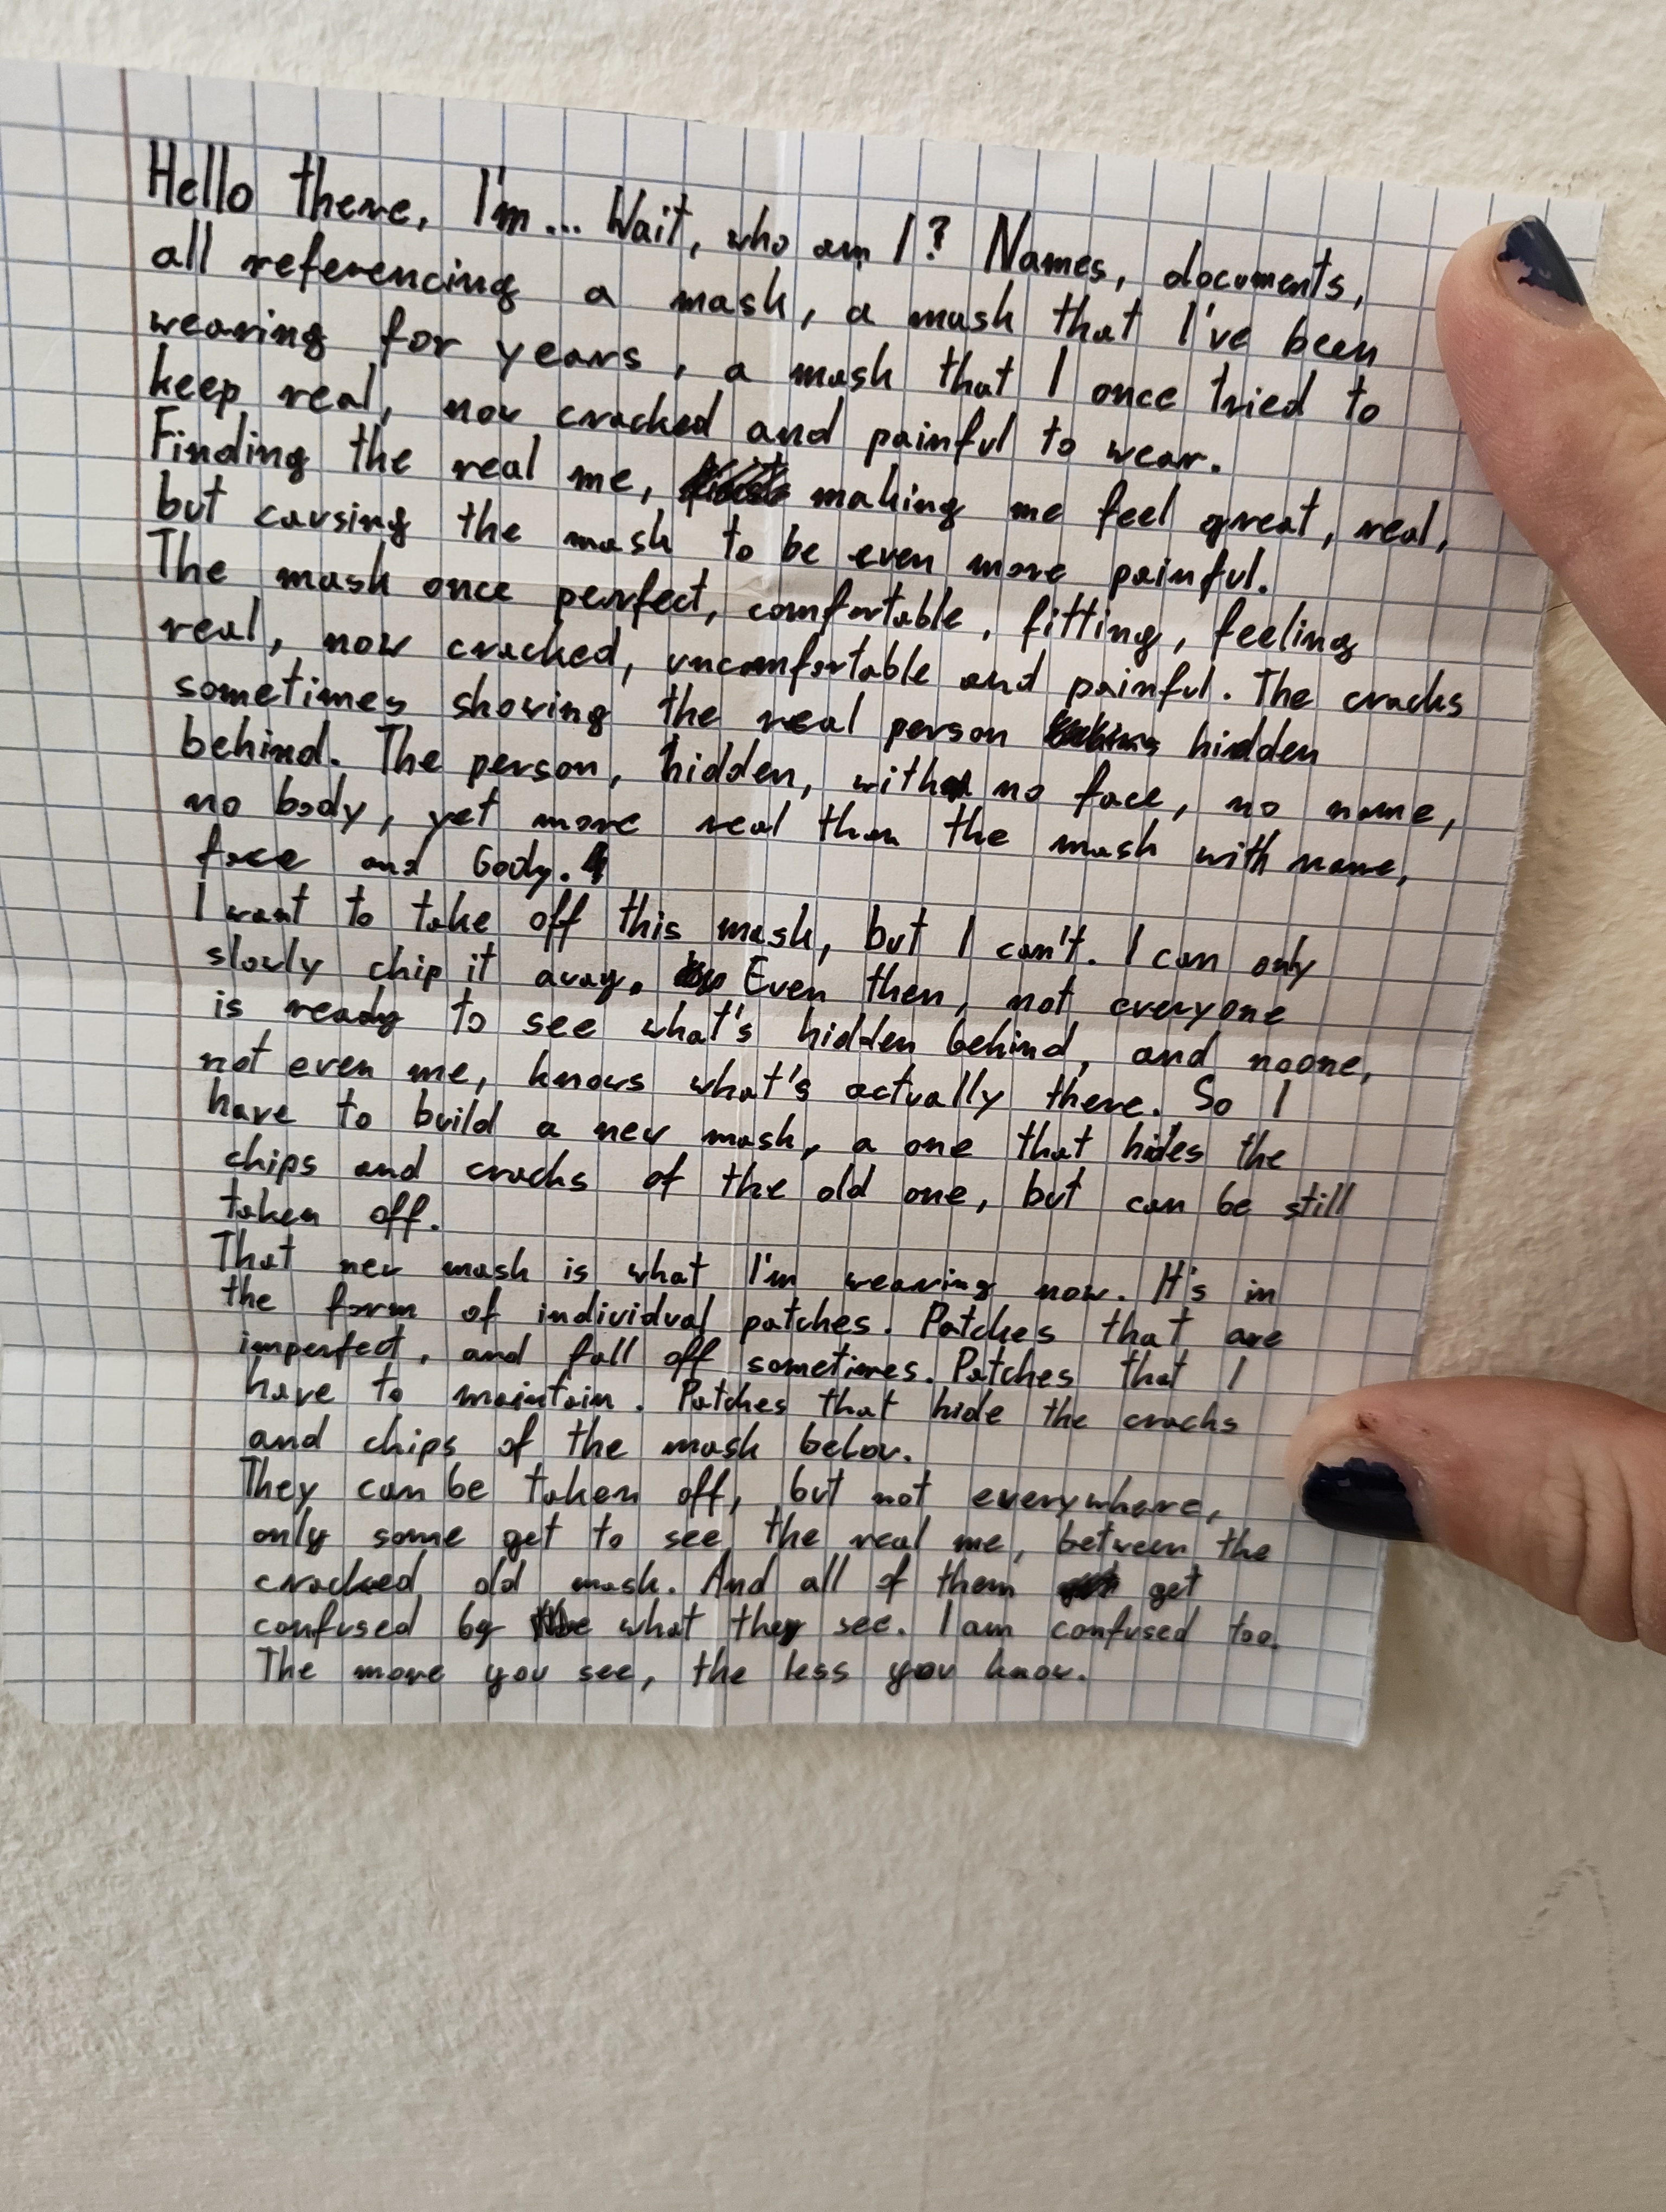 Hello there, I'm... Wait, who am I? Names, documents,
all referencing a mask, a mask that I've been
wearing for years, a mask that I once tried to
keep real, now cracked and painful to wear.
Finding the real me, making me feel great, real,
but causing the mask to be even more painful.
The mask once perfect, comfortable, fitting, feeling
real, now cracked, uncomfortable and painful. The cracks
sometimes showing the real person hidden
behind. The person, hidden, with no face, no name,
no body, yet more real than the mask with name,
face and body.
I want to take off this mask, but I can't. I can only
slowly chip it away. Even then, not everyone
is ready to see what's hidden behind, and noone,
not even me, knows what's actually there. So I
have to build a new mask, a one that hides the
chips and cracks of the old one, but can be still
taken off.
That new mask is what I'm wearing now. It's in
the form of individual patches. Patches that are
imperfect, and fall off sometimes. Patches that I
have to maintain. Patches that hide the cracks
and chips of the mask below.
They can be taken off, but not everywhere,
only some get to see the real me, between the
cracked old mask. And all of them get
confused by what they see. I am confused too.
The more you see, the less you know.